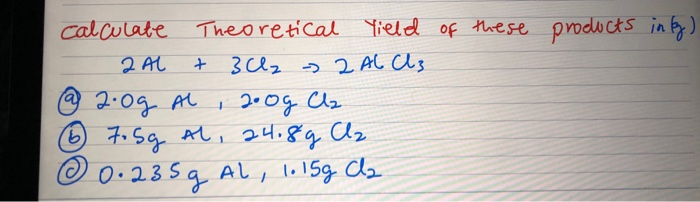 calculate Theoretical Yield of these products in (g)
2 Al + 3Cl2 → 2 AlCl3
(a) 2.0g Al, 2.0g Cl2
(b) 7.5g Al, 24.8g Cl2
(c) 0.235g Al, 1.15g Cl2